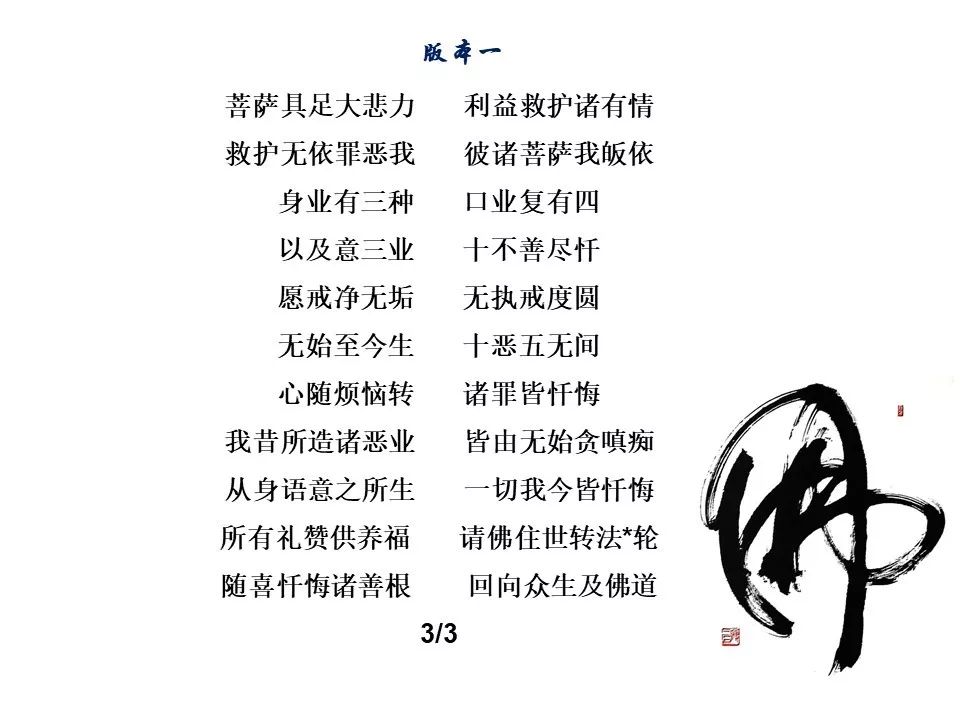 版本一
菩萨具足大悲力 利益救护诸有情
救护无依罪恶我 彼诸菩萨我皈依
身业有三种 口业复有四
以及意三业 十不善尽忏
愿戒净无垢 无执戒度圆
无始至今生 十恶五无间
心随烦恼转 诸罪皆忏悔
我昔所造诸恶业 皆由无始贪嗔痴
从身语意之所生 一切我今皆忏悔
所有礼赞供养福 请佛住世转法*轮
随喜忏悔诸善根 回向众生及佛道
3/3
佛